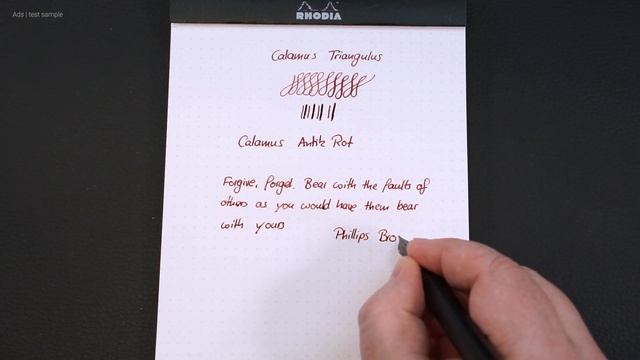 Ads | test sample
RHODIA
Calamus Triangulus
Calamus Antik Rot
Forgive, forget. Bear with the faults of
others as you would have them bear
with yours
Phillips Bro